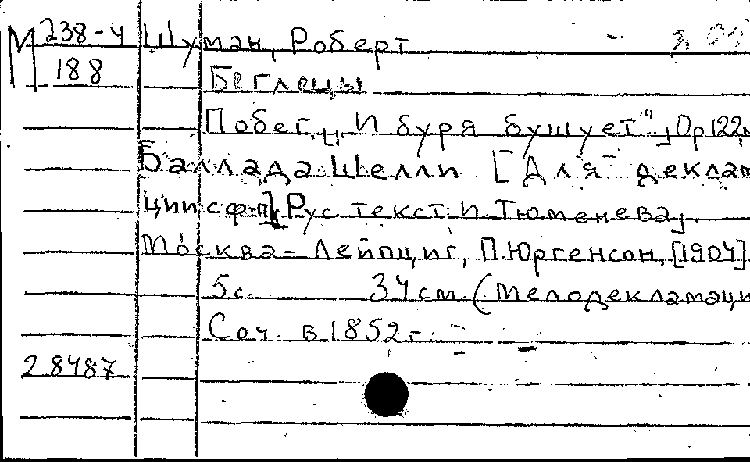 М 238-4 Шуман, Роберт
188 Беглецы
Побег. „И буря бушует", Ор. 122,
Баллада Шелли [Для деклам
ции с ф-п]. Рус текст И. Тюменева.
Москва - Лейпциг, П. Юргенсон, [1904].
5 с. 34 см (Мелодекламаци
Соч. в 1852 г.
28487